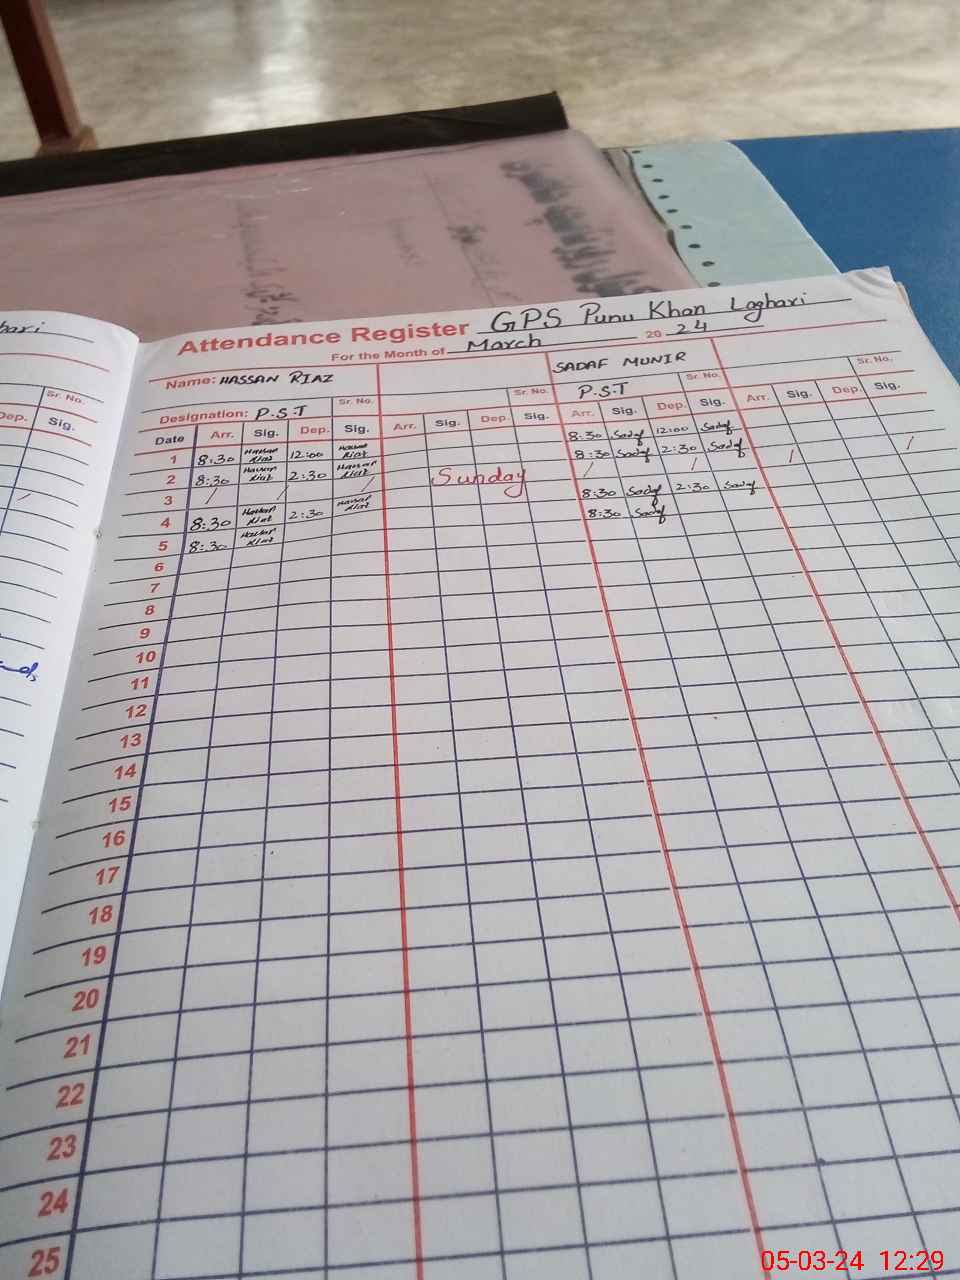 Attendance Register GPS Punu Khan Laghari
For the Month of March 20 24
Name: HASSAN RIAZ SADAF MUNIR
Sr. No. Sr. No. Sr. No. Sr. No.
Designation: P.S.T P.S.T
Date Arr. Sig. Dep. Sig. Arr. Sig. Dep. Sig. Arr. Sig. Dep. Sig. Arr. Sig. Dep. Sig.
1 8:30 Hassan Riaz 12:00 Hassan Riaz 8:30 Sadaf 12:00 Sadaf
2 8:30 Hassan Riaz 2:30 Hassan Riaz 8:30 Sadaf 2:30 Sadaf
3 / / / Sunday / / / /
4 8:30 Hassan Riaz 2:30 Hassan Riaz 8:30 Sadaf 2:30 Sadaf
5 8:30 Hassan Riaz 8:30 Sadaf
6
7
8
9
10
11
12
13
14
15
16
17
18
19
20
21
22
23
24
25
Sr. No.
Dep. Sig.
05-03-24 12:29